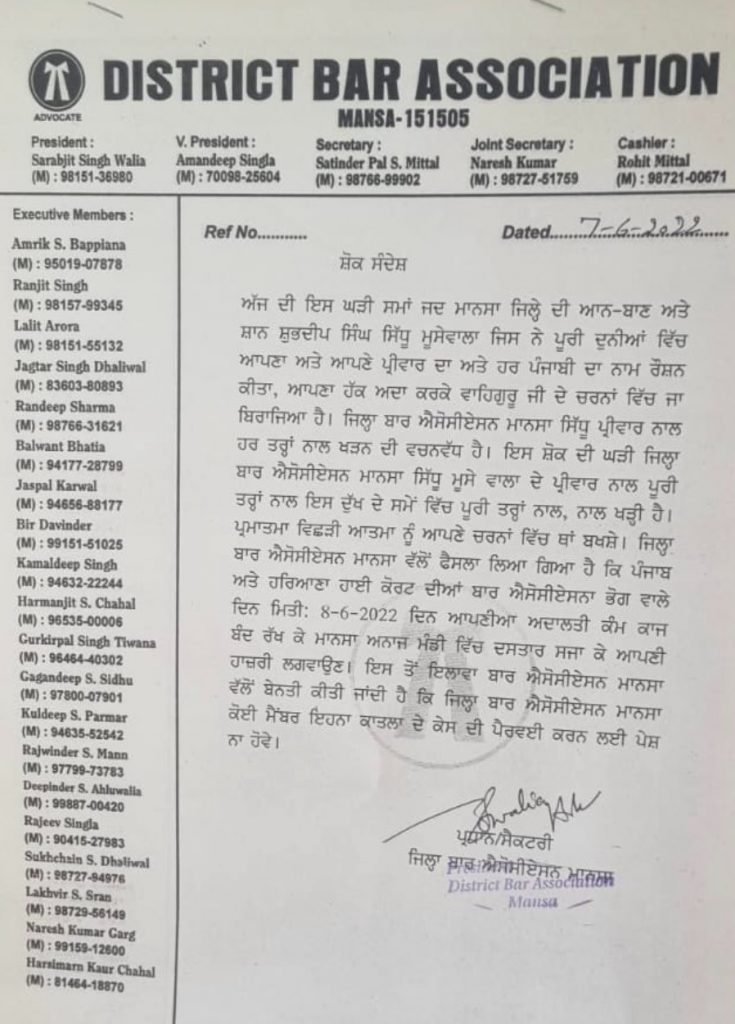 ADVOCATE
DISTRICT BAR ASSOCIATION
MANSA-151505
President :
Sarabjit Singh Walia
(M) : 98151-36980
V. President :
Amandeep Singla
(M) : 70098-25604
Secretary :
Satinder Pal S. Mittal
(M) : 98766-99902
Joint Secretary :
Naresh Kumar
(M) : 98727-51759
Cashier :
Rohit Mittal
(M) : 98721-00671
Executive Members :
Amrik S. Bappiana
(M) : 95019-07878
Ranjit Singh
(M) : 98157-99345
Lalit Arora
(M) : 98151-55132
Jagtar Singh Dhaliwal
(M) : 83603-80893
Randeep Sharma
(M) : 98766-31621
Balwant Bhatia
(M) : 94177-28799
Jaspal Karwal
(M) : 94656-88177
Bir Davinder
(M) : 99151-51025
Kamaldeep Singh
(M) : 94632-22244
Harmanjit S. Chahal
(M) : 96535-00006
Gurkirpal Singh Tiwana
(M) : 96464-40302
Gagandeep S. Sidhu
(M) : 97800-07901
Kuldeep S. Parmar
(M) : 94635-52542
Rajwinder S. Mann
(M) : 97799-73783
Deepinder S. Ahluwalia
(M) : 99887-00420
Rajeev Singla
(M) : 90415-27983
Sukhchain S. Dhaliwal
(M) : 98727-94976
Lakhvir S. Sran
(M) : 98729-56149
Naresh Kumar Garg
(M) : 99159-12600
Harsimarn Kaur Chahal
(M) : 81464-18870
Ref No...........
Dated........7-6-2022......
ਸ਼ੋਕ ਸੰਦੇਸ਼
ਅੱਜ ਦੀ ਇਸ ਘੜੀ ਸਮਾਂ ਜਦ ਮਾਨਸਾ ਜਿਲ੍ਹੇ ਦੀ ਆਨ-ਬਾਣ ਅਤੇ
ਸ਼ਾਨ ਸ਼ੁਭਦੀਪ ਸਿੰਘ ਸਿੱਧੂ ਮੂਸੇਵਾਲਾ ਜਿਸ ਨੇ ਪੂਰੀ ਦੁਨੀਆਂ ਵਿੱਚ
ਆਪਣਾ ਅਤੇ ਆਪਣੇ ਪ੍ਰੀਵਾਰ ਦਾ ਅਤੇ ਹਰ ਪੰਜਾਬੀ ਦਾ ਨਾਮ ਰੌਸ਼ਨ
ਕੀਤਾ, ਆਪਣਾ ਹੱਕ ਅਦਾ ਕਰਕੇ ਵਾਹਿਗੁਰੂ ਜੀ ਦੇ ਚਰਨਾਂ ਵਿੱਚ ਜਾ
ਬਿਰਾਜਿਆ ਹੈ। ਜਿਲ੍ਹਾ ਬਾਰ ਐਸੋਸੀਏਸਨ ਮਾਨਸਾ ਸਿੱਧੂ ਪ੍ਰੀਵਾਰ ਨਾਲ
ਹਰ ਤਰ੍ਹਾਂ ਨਾਲ ਖੜਨ ਦੀ ਵਚਨਵੱਧ ਹੈ। ਇਸ ਸ਼ੋਕ ਦੀ ਘੜੀ ਜਿਲ੍ਹਾ
ਬਾਰ ਐਸੋਸੀਏਸਨ ਮਾਨਸਾ ਸਿੱਧੂ ਮੂਸੇ ਵਾਲਾ ਦੇ ਪ੍ਰੀਵਾਰ ਨਾਲ ਪੂਰੀ
ਤਰ੍ਹਾਂ ਨਾਲ ਇਸ ਦੁੱਖ ਦੇ ਸਮੇਂ ਵਿੱਚ ਪੂਰੀ ਤਰ੍ਹਾਂ ਨਾਲ, ਨਾਲ ਖੜ੍ਹੀ ਹੈ।
ਪ੍ਰਮਾਤਮਾ ਵਿਛੜੀ ਆਤਮਾ ਨੂੰ ਆਪਣੇ ਚਰਨਾਂ ਵਿੱਚ ਥਾਂ ਬਖਸ਼ੇ। ਜਿਲ੍ਹਾ
ਬਾਰ ਐਸੋਸੀਏਸਨ ਮਾਨਸਾ ਵੱਲੋਂ ਫੈਸਲਾ ਲਿਆ ਗਿਆ ਹੈ ਕਿ ਪੰਜਾਬ
ਅਤੇ ਹਰਿਆਣਾ ਹਾਈ ਕੋਰਟ ਦੀਆਂ ਬਾਰ ਐਸੋਸੀਏਸਨਾ ਭੋਗ ਵਾਲੇ
ਦਿਨ ਮਿਤੀ: 8-6-2022 ਦਿਨ ਆਪਣੀਆ ਅਦਾਲਤੀ ਕੰਮ ਕਾਜ
ਬੰਦ ਰੱਖ ਕੇ ਮਾਨਸਾ ਅਨਾਜ ਮੰਡੀ ਵਿੱਚ ਦਸਤਾਰ ਸਜਾ ਕੇ ਆਪਣੀ
ਹਾਜ਼ਰੀ ਲਗਵਾਉਣ। ਇਸ ਤੋਂ ਇਲਾਵਾ ਬਾਰ ਐਸੋਸੀਏਸਨ ਮਾਨਸਾ
ਵੱਲੋਂ ਬੇਨਤੀ ਕੀਤੀ ਜਾਂਦੀ ਹੈ ਕਿ ਜਿਲ੍ਹਾ ਬਾਰ ਐਸੋਸੀਏਸਨ ਮਾਨਸਾ
ਕੋਈ ਮੈਂਬਰ ਇਹਨਾ ਕਾਤਲਾ ਦੇ ਕੇਸ ਦੀ ਪੈਰਵਈ ਕਰਨ ਲਈ ਪੇਸ਼
ਨਾ ਹੋਵੇ।
ਪ੍ਰਧਾਨ/ਸੈਕਟਰੀ
ਜਿਲ੍ਹਾ ਬਾਰ ਐਸੋਸੀਏਸਨ ਮਾਨਸਾ
District Bar Association
Mansa